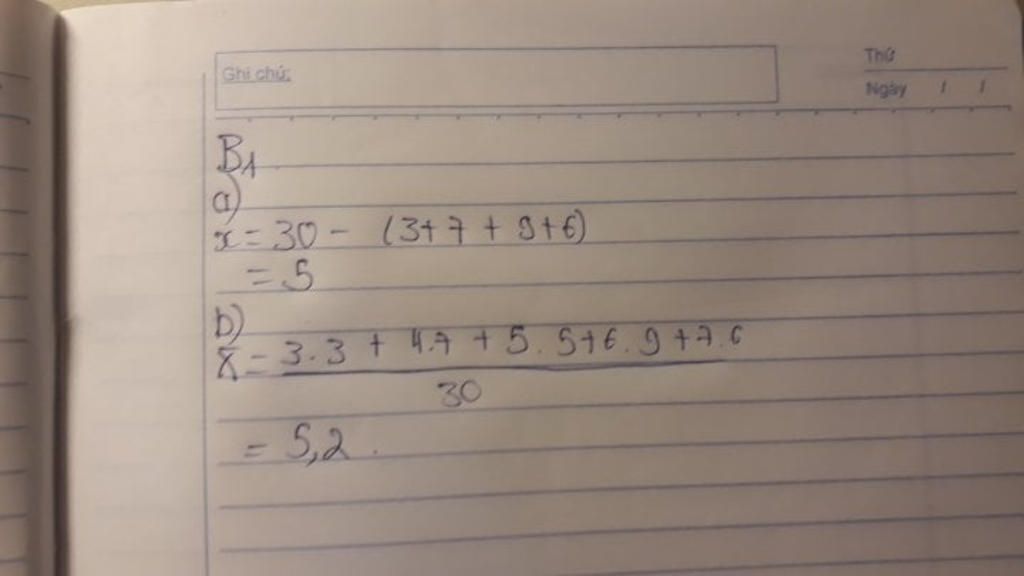 Ghi chú:
Thứ
Ngày / /
B1
a)
x = 30 - (3+7 + 9+6)
= 5
b)
X̄ = 3.3 + 4.7 + 5.5+6.9+7.6
30
= 5,2.